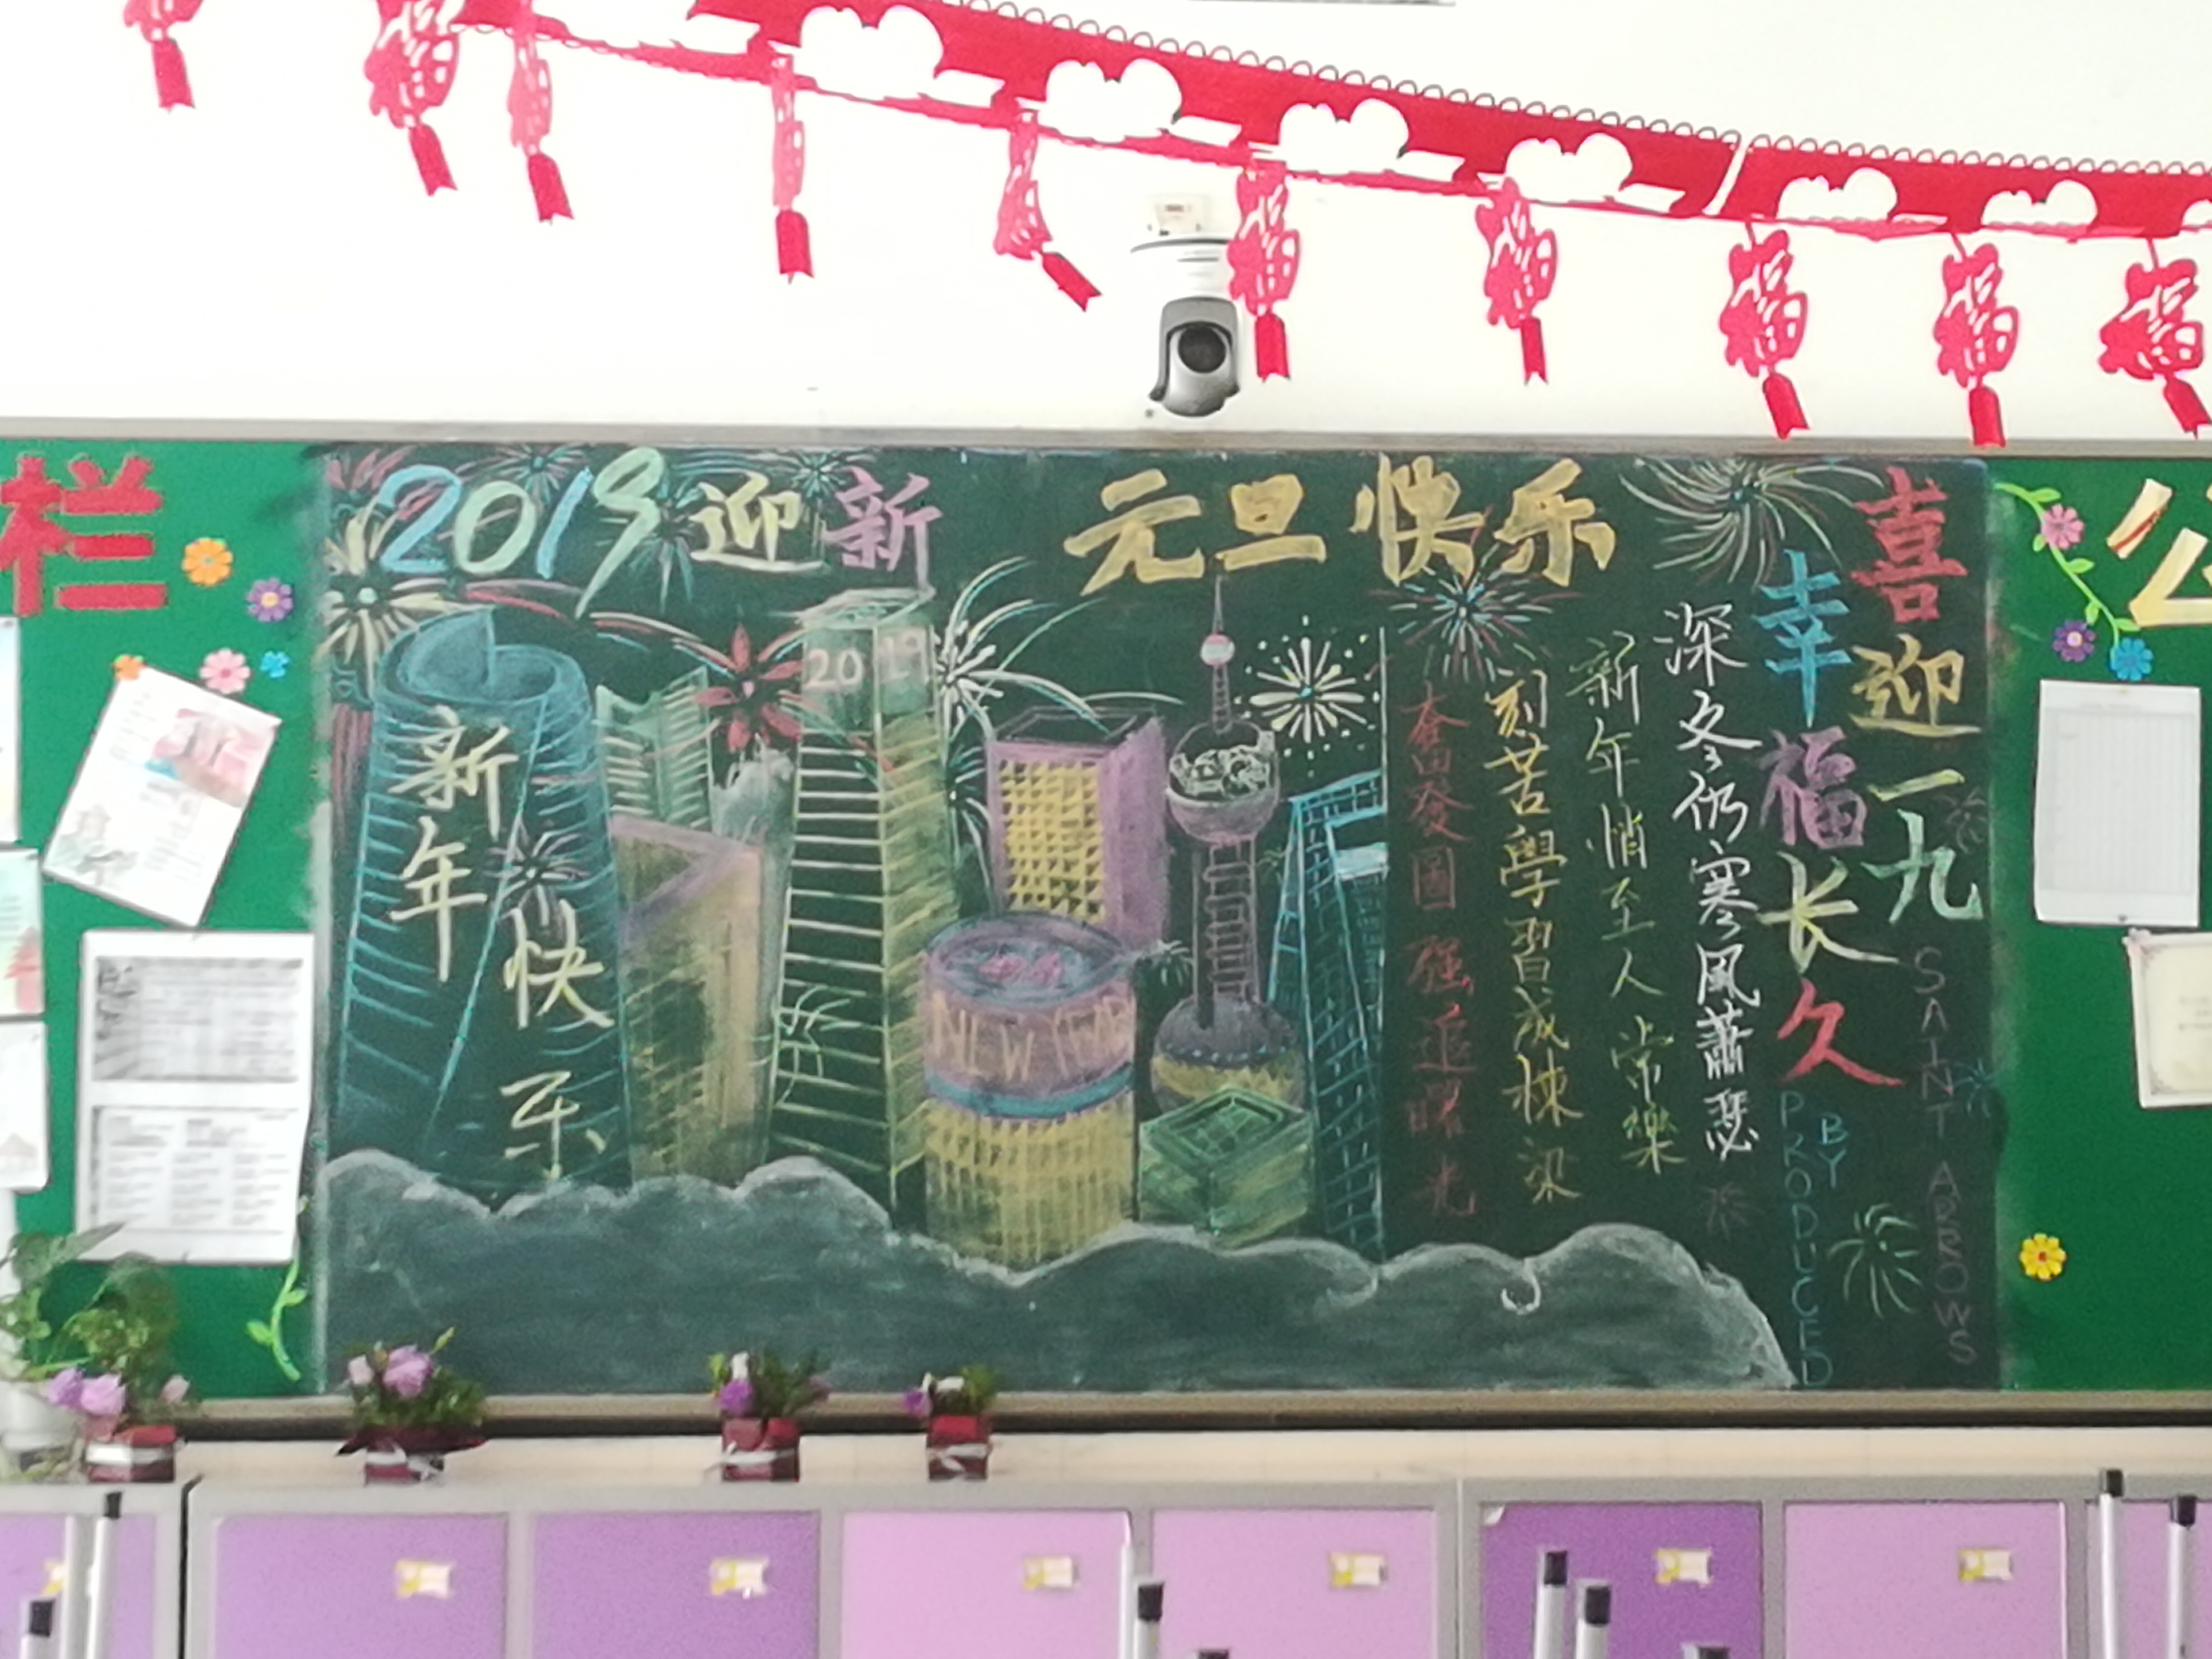 福
福
福
福
福
栏
公
2019迎新
元旦快乐
喜迎一九
幸福长久
深冬仍寒风萧瑟
新年悄至人常樂
刻苦學習成棟梁
奋發圖强追曙光
新年
快乐
2019
NEW YEAR
PRODUCED
BY
SAINT ARROWS